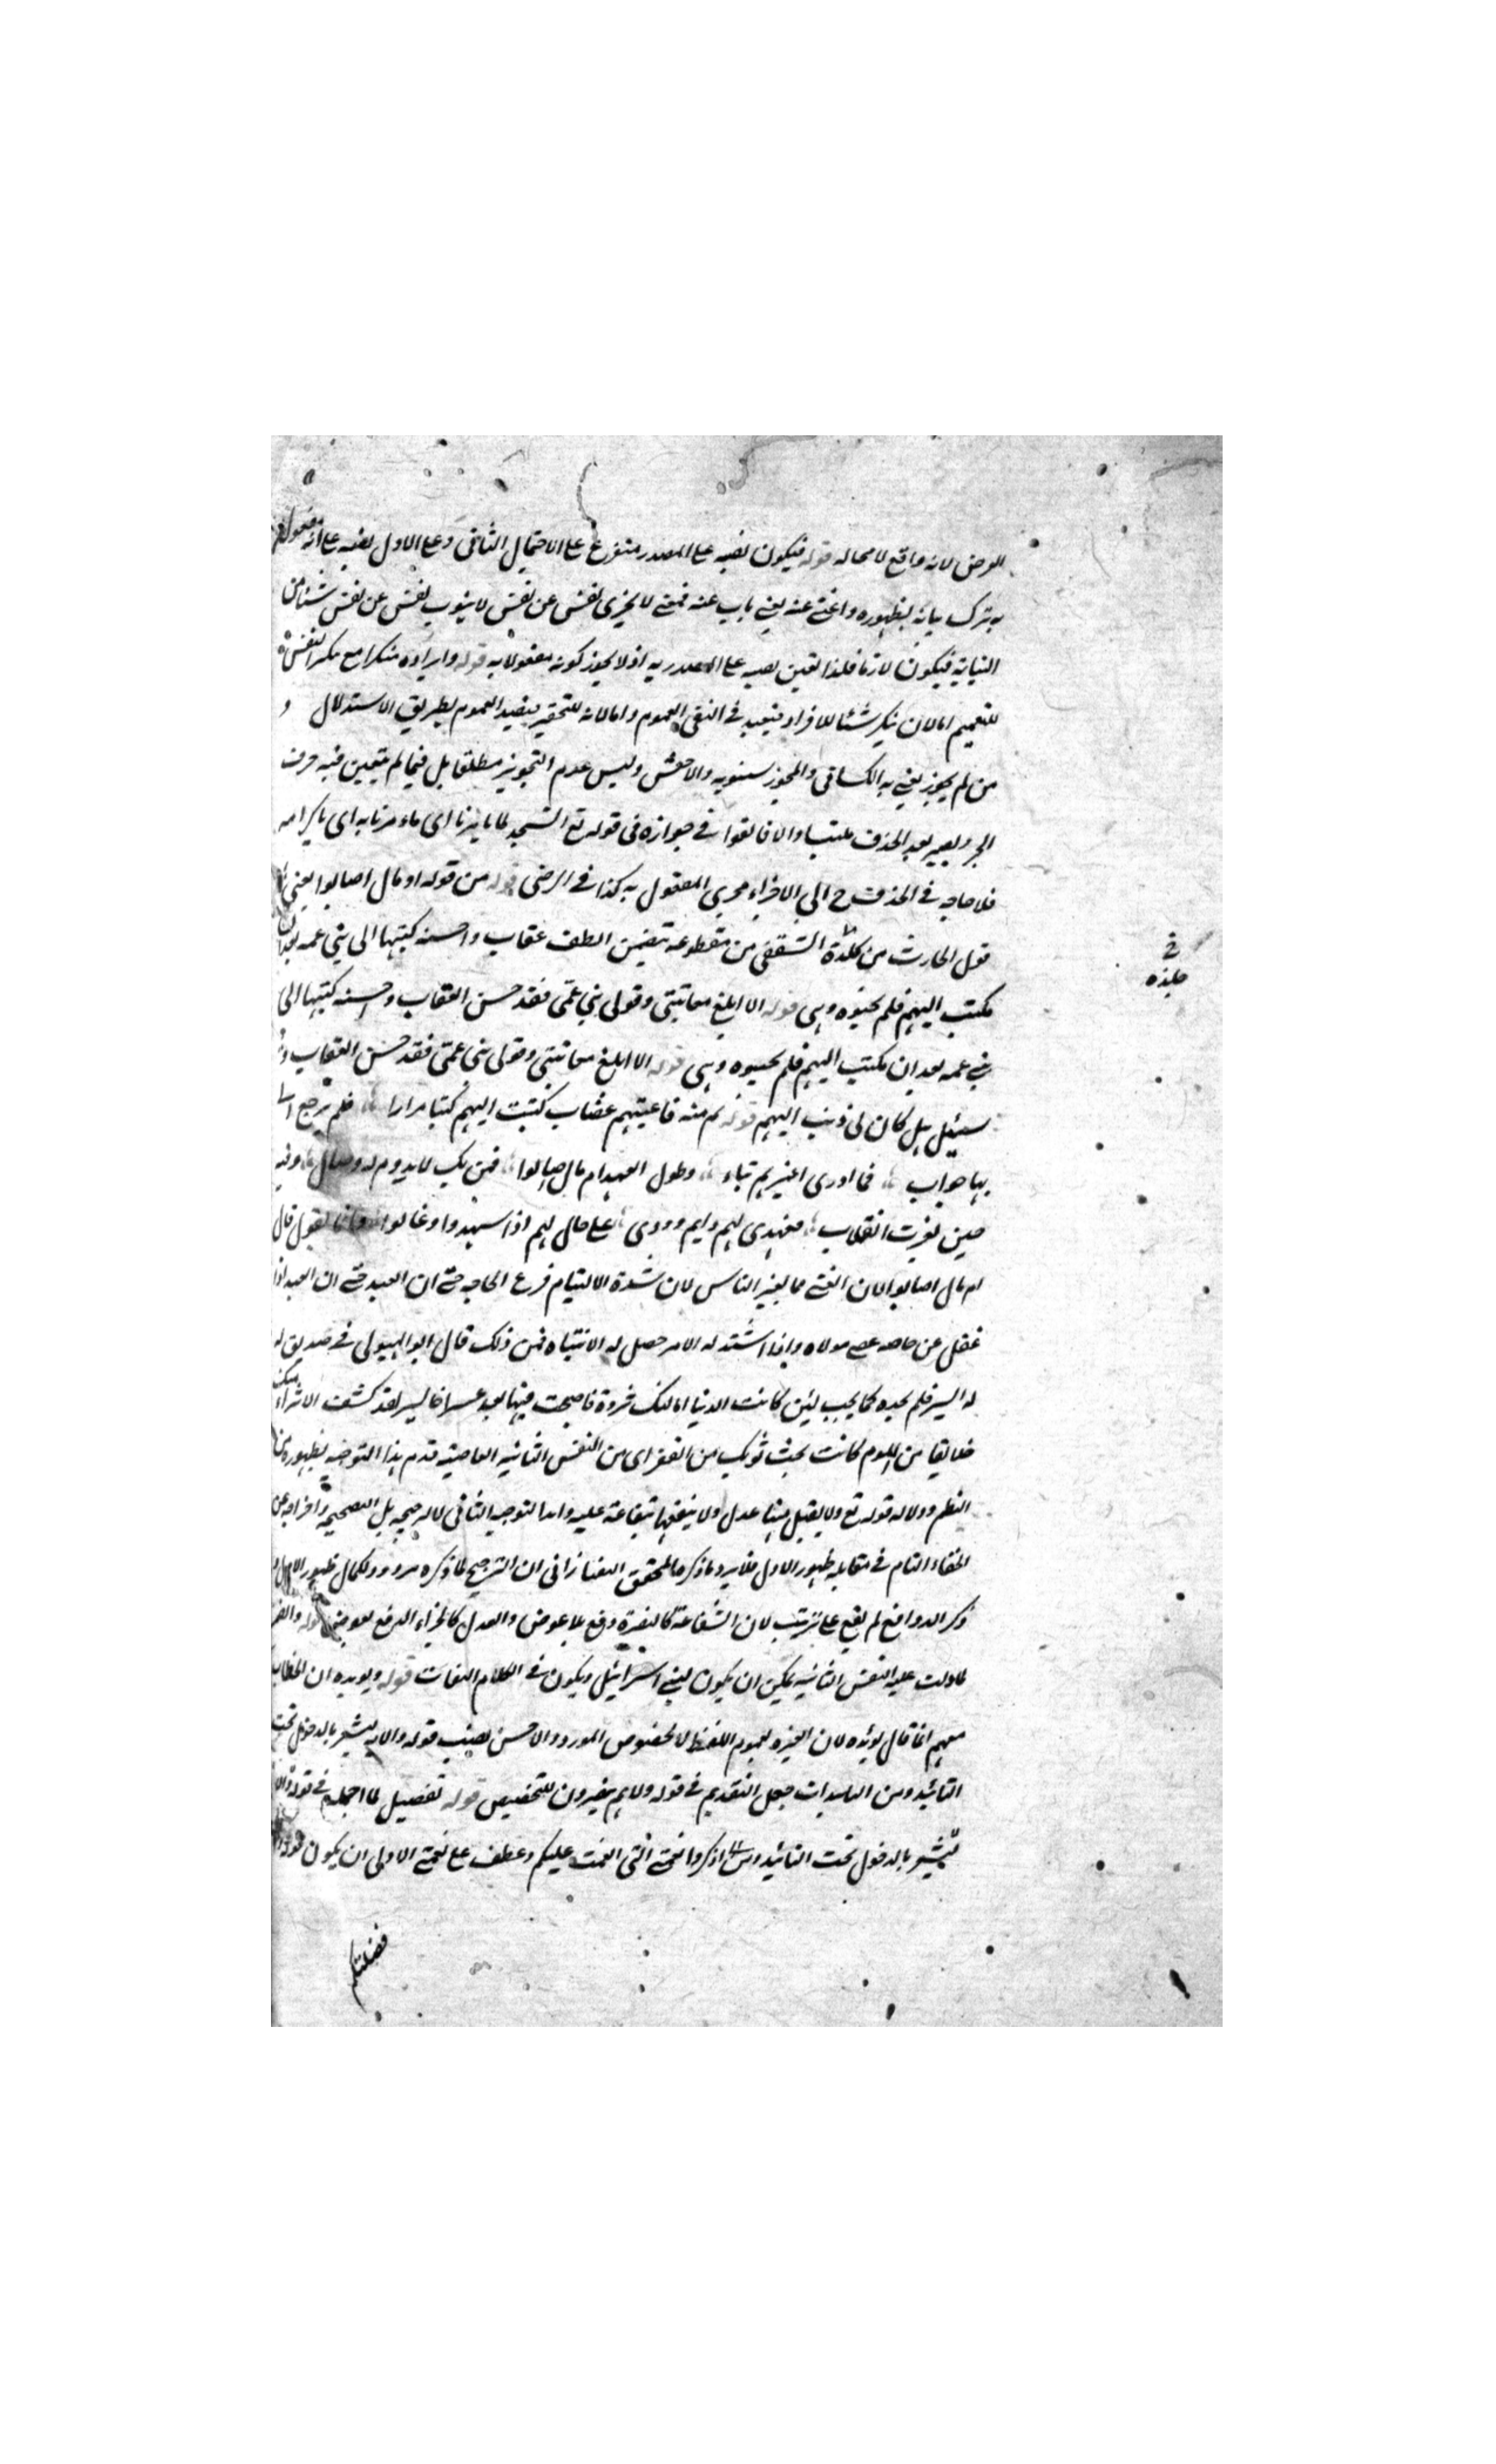 الرضى لانه واقع لا محاله قوله فيكون نصبه على المصدر متفرع على الاحتمال الثانى وعلى الاول نصبه على انه مفعول
به ترك بيانه لظهوره واغنى عنه يعنى ناب عنه فمعنى لا يجزى نفس عن نفس لا ينوب نفس عن نفس شيئا من
النيابة فيكون لازما فلذا تعين نصبه على المصدرية اذ لا يجوز كونه مفعولا به قوله وايراده منكرا مع تنكير النفس
للتعميم اما لان تنكير شيئا للافراد فيفيد فى النفى العموم واما لانه للتحقير فيفيد العموم بطريق الاستدلال و
من لم يجوز يعنى به الكسائى والمجوز سيبويه والاخفش وليس عدم التجويز مطلقا بل فيما لم يتعين فيه حرف
الجر ويصير بعد الحذف ملتبسا والا فاتفقوا فى جوازه فى قوله تع انسجد لما تامرنا اى ما تامرنا به اى باكرامه
فلا حاجه فى الحذف ح الى الاجراء مجرى المفعول به كذا فى الرضى قوله من قوله او مال اصابوا يعنى
قول الحارث من كلدة الثقفى من مقطوعه تتضمن الطف عتاب واحسنه كتبها الى بنى عمه بعد ان
مكتب اليهم فلم يجيبوه وهى قوله الا ابلغ معاتبتى وقولى بنى عمى فقد حسن العتاب واحسنه كتبها الى
بنى عمه بعد ان مكتب اليهم فلم يجيبوه وهى قوله الا ابلغ معاتبتى وقولى بنى عمى فقد حسن العتاب و
سيئل هل كان لى ذنب اليهم قوله هم منه فاعتبهم غضاب كتبت اليهم كتبا مرارا فلم يرجع الى
بها جواب فما ادرى اغيرهم تناء وطول العهد ام مال اصابوا فمن يك لا يدوم له وصال وفيه
حين يغرب انقلاب فعهدى لهم دايم وودى على حال لهم اذا شهدوا او غابوا وانما يقول قال
ام مال اصابوا لان الغنى مما يغير الناس لان شدة الالتيام فرع الحاجه حتى ان العبد حتى ان العبد اذا
غفل عن حاجه عصى مولاه واذا اشتد له الامر حصل له الانتباه فمن ذلك قال ابو الهيولى فى صديق له
له اليسر فلم يجده كما يحب لئن كانت الدنيا انالتك ثروة فاصبحت فيها بعد عسر اخا يسر لقد كشف الاثراء منك
خلايقا من اللوم كانت تحت ثوبك من الفقر اى من النفس الثانيه العاصيه قدم هذا التوجيه لظهوره من
النظم ودلاله قوله تع ولا يقبل منها عدل ولا ينفعها شفاعة عليه واما التوجيه الثانى لا لترجيحه بل لتصحيحه واخراجه عن
الخفاء التام فى مقابله ظهور الاول فلا يرد ما ذكره المحقق التفتازانى ان الترجيح لما ذكره مردود لكمال ظهور الاول
ذكر الدوافع لم يقع على ترتيب لان الشفاعة كالنصرة دفع بلا عوض والعدل كالجزاء الدفع بعوض قوله والضمير
لما دلت عليه النفس الثانيه يمكن ان يكون لبنى اسرائيل ويكون فى الكلام التفات قوله ويؤيده ان الخطاب
معهم انما قال يؤيده لان العبرة لعموم اللفظ لا لخصوص المورد والاحسن نصب قوله والايه ليشعر بالدخول تحت
التائيد ومن التاييدات جعل التقديم فى قوله ولا هم ينصرون للتخصيص قوله تفصيل لما اجمله فى قوله
ليشعر بالدخول تحت التائيد اذكروا نعمتى التى انعمت عليكم وعطف على نعمتى الاولى ان يكون قوله
فضلتكم
فى
جلده